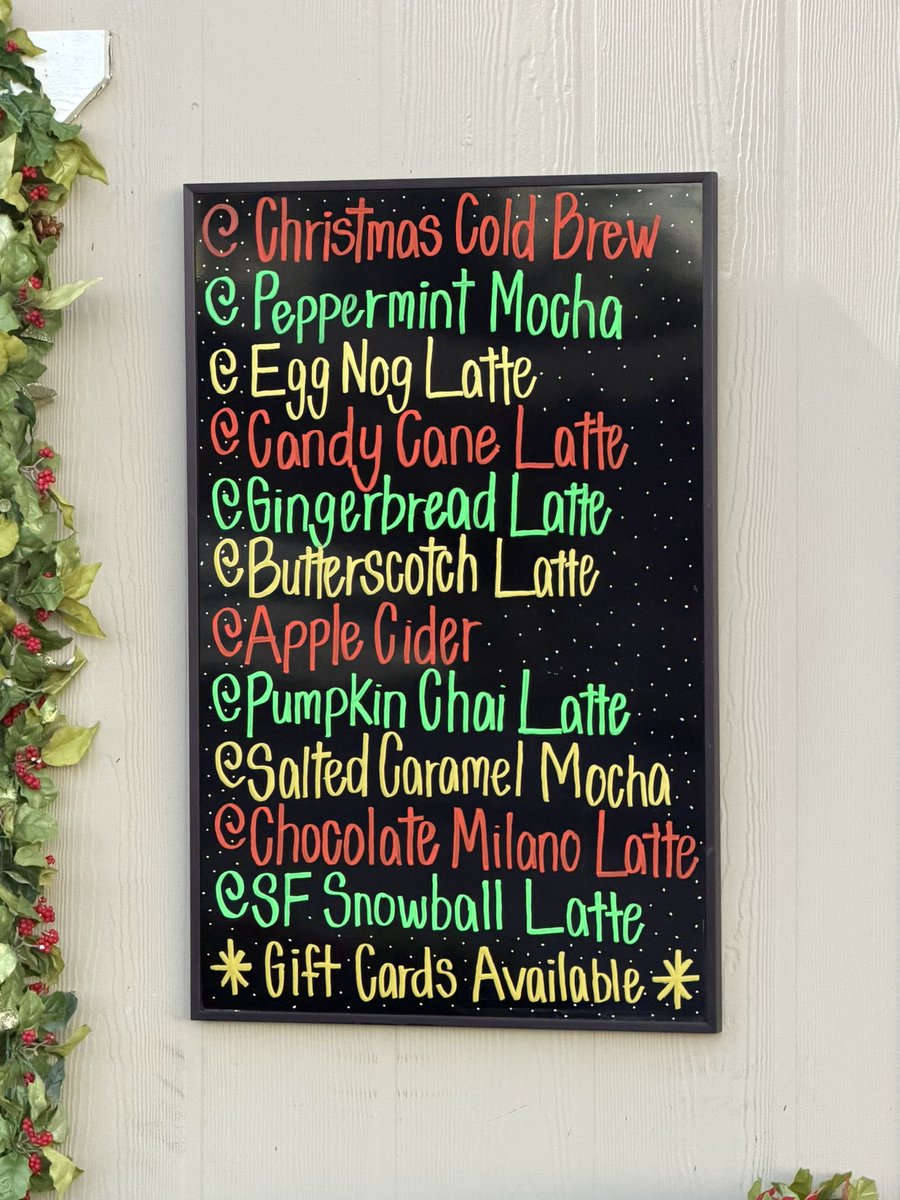 Christmas Cold Brew
Peppermint Mocha
Egg Nog Latte
Candy Cane Latte
Gingerbread Latte
Butterscotch Latte
Apple Cider
Pumpkin Chai Latte
Salted Caramel Mocha
Chocolate Milano Latte
SF Snowball Latte
* Gift Cards Available *